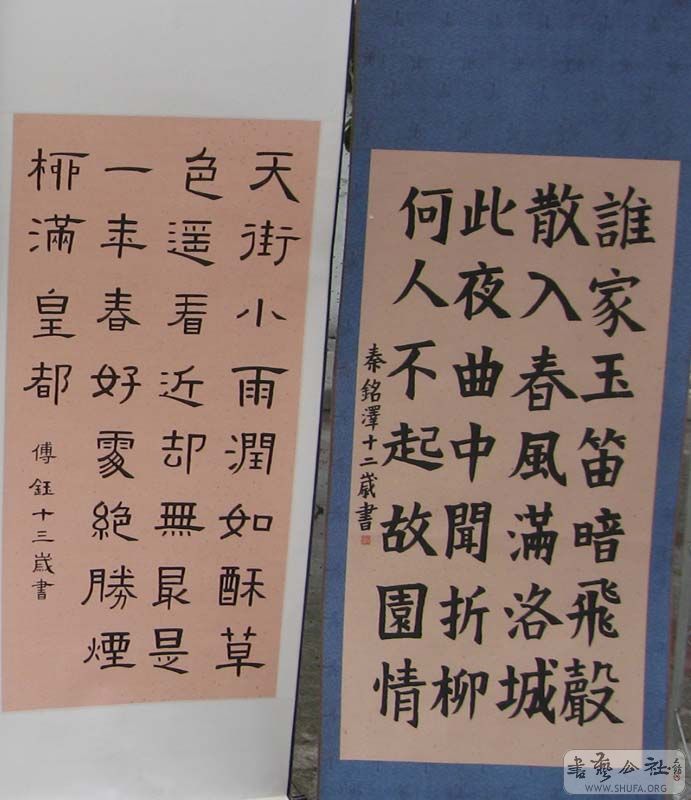 誰家玉笛暗飛聲
散入春風滿洛城
此夜曲中聞折柳
何人不起故園情
秦銘澤十二歲書
天街小雨潤如酥草
色遥看近却無最是
一年春好處絶勝煙
柳滿皇都
傅鈺十三歲書
書藝公社
WWW.SHUFA.ORG